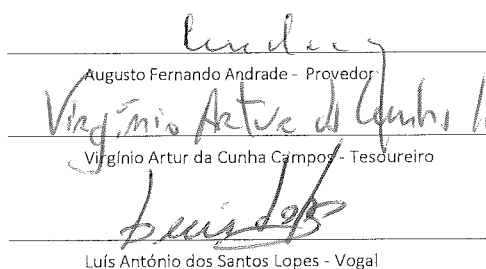 Augusto Fernando Andrade - Provedor
Virgínio Artur da Cunha
Virgínio Artur da Cunha Campos - Tesoureiro
Luís António dos Santos Lopes - Vogal